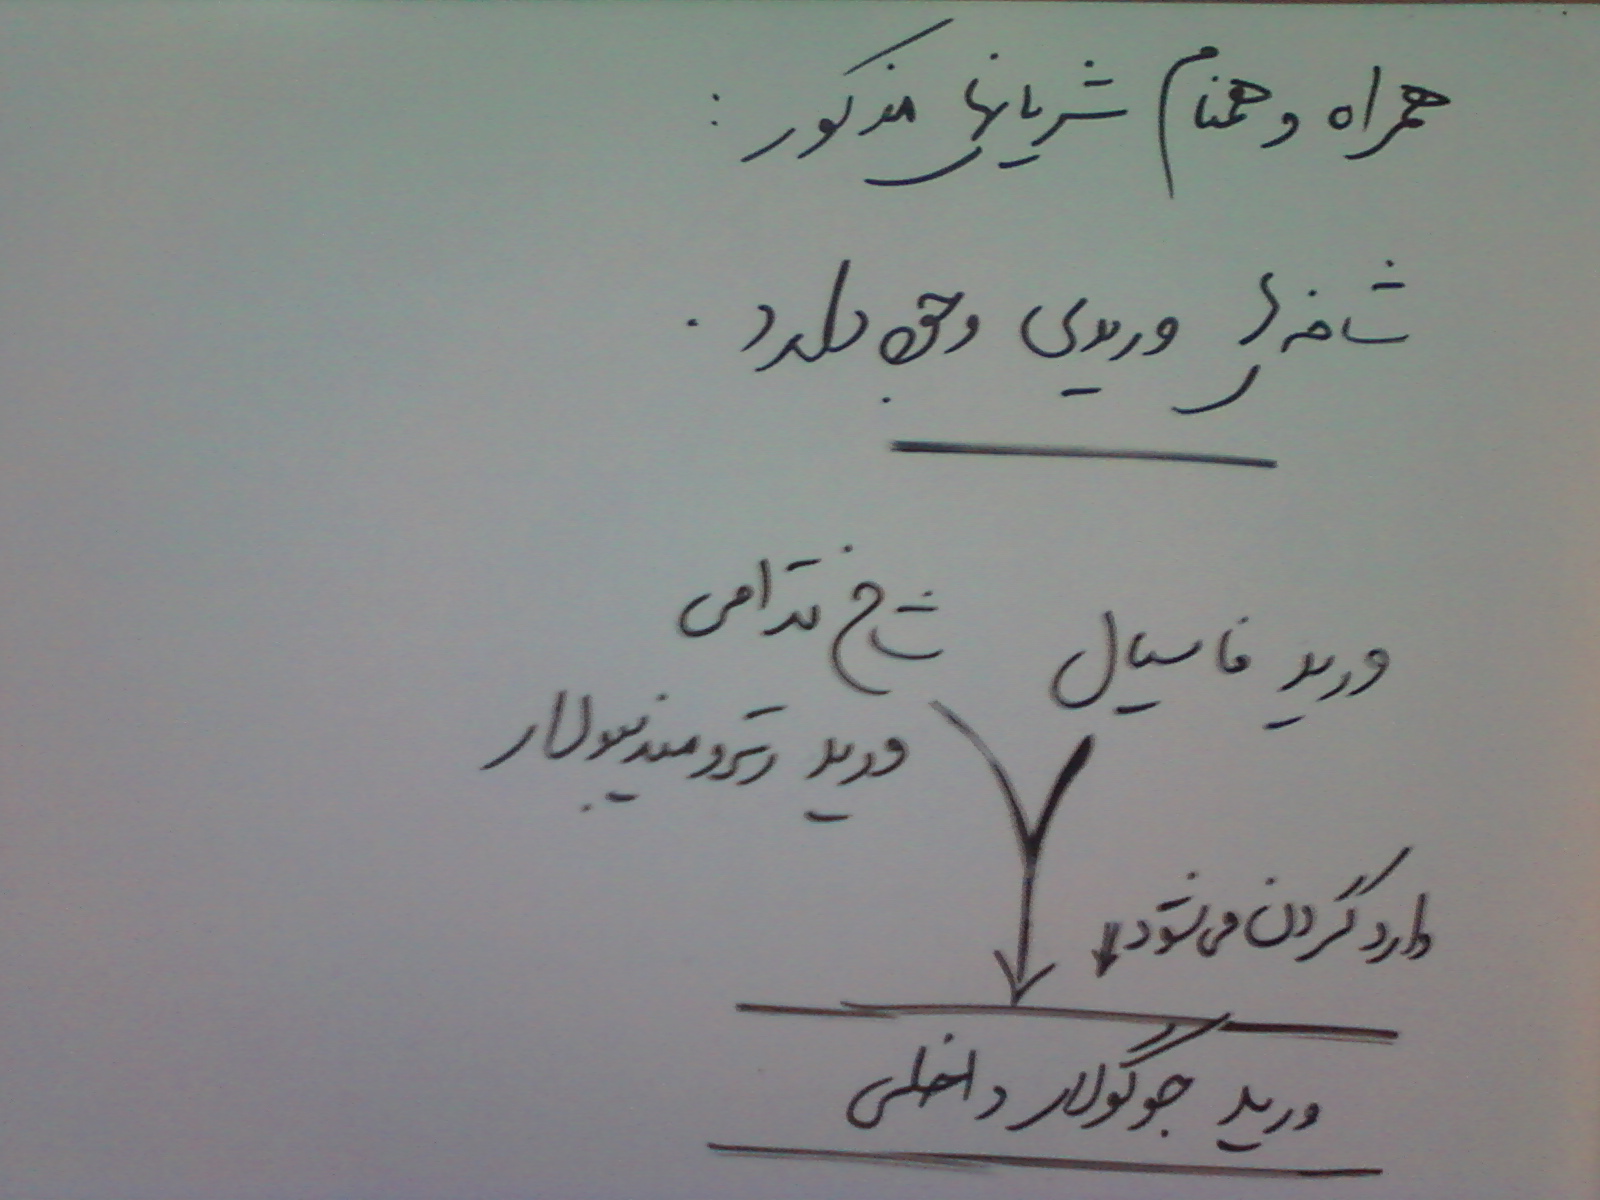 همراه و همنام شریانهای مذکور :
شاخه های وریدی وجود دارد .
ورید فاسیال
شاخ قدامی
ورید رترومندیبولار
وارد گردن می شود
ورید جوگولار داخلی